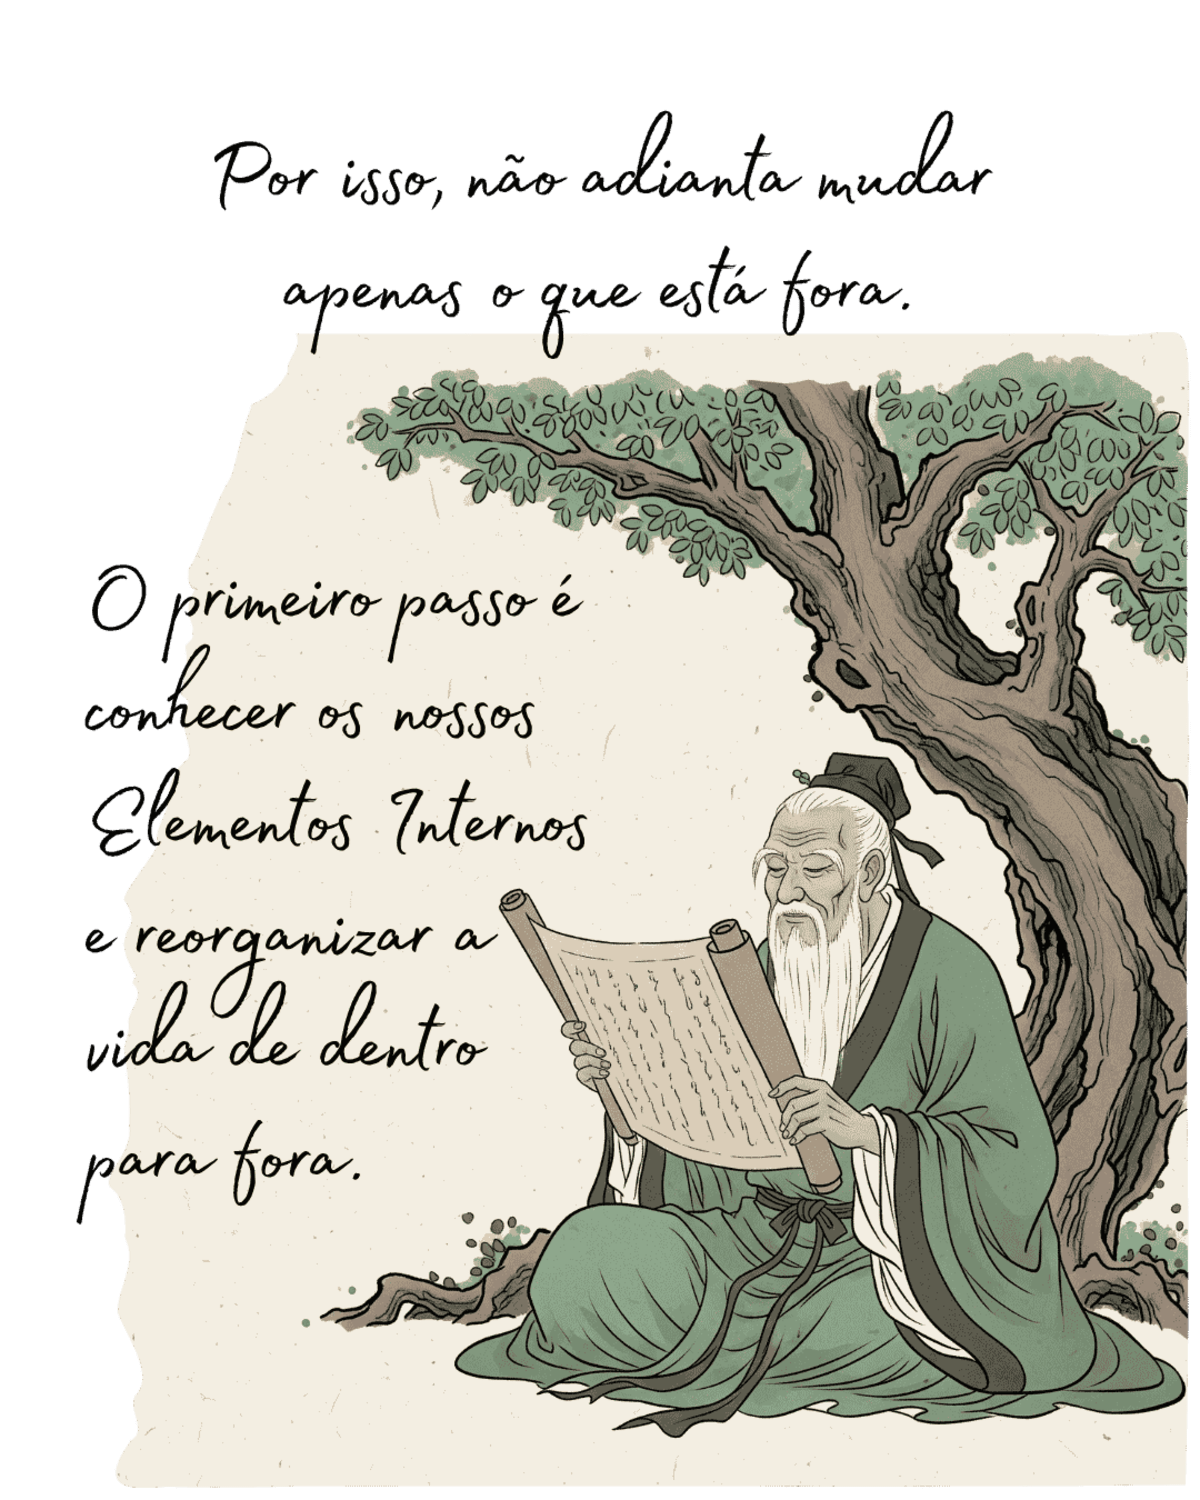 Por isso, não adianta mudar
apenas o que está fora.
O primeiro passo é
conhecer os nossos
Elementos Internos
e reorganizar a
vida de dentro
para fora.